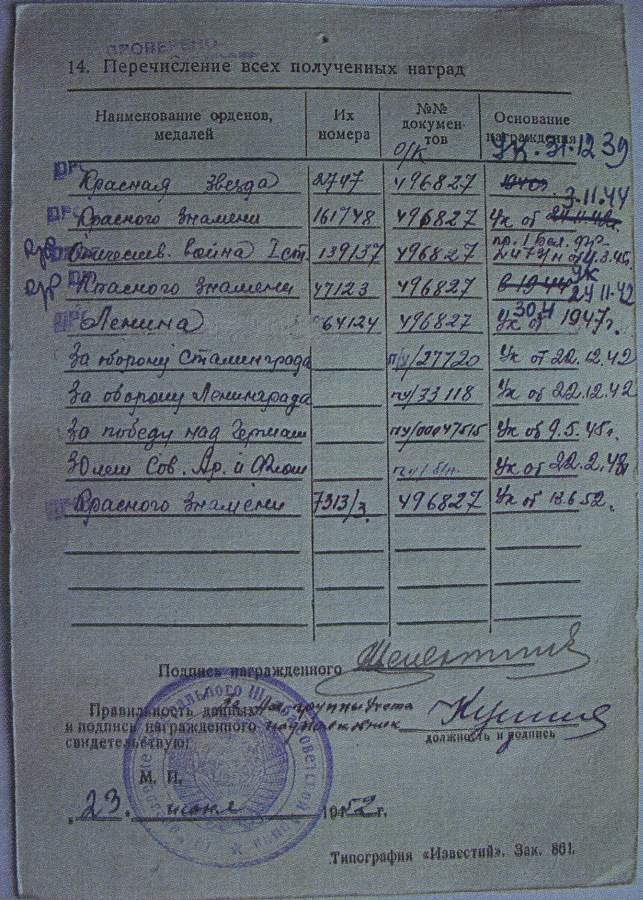 ПРОВЕРЕНО
14. Перечисление всех полученных наград
Наименование орденов, медалей Их номера №№ документов Основание награждения
О/К Ук. 31.12.39
Красная Звезда 2747 496827
3.11.44
Красного Знамени 161748 496827 Ук от
Отечествен. война I ст. 139137 496827
Ук
Красного Знамени 47123 496827 24 11.42
30.4
Ленина 64124 496827 Ук от 1947г.
За оборону Сталинграда пу/27720 Ук от 22.12.42
За оборону Ленинграда пу/33118 Ук от 22.12.42
За победу над Герман пу/00047515 Ук от 9.5.45г.
30 лет Сов. Ар. и Флот Ук от 22.2.48г
Красного Знамени 7313/3. 496827 Ук от 13.6.52.
Подпись награжденного
Правильность данных группы учета
и подпись награжденного подполковник
свидетельствую:
должность и подпись
М. П.
„23. июня 1952 г.
Типография «Известий». Зак. 861.